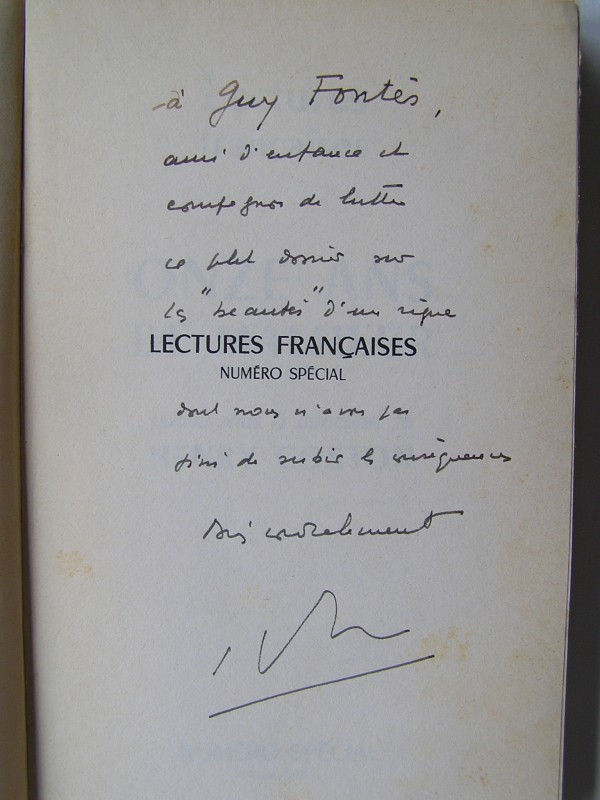 à Guy Fontès,
ami d'enfance et
compagnon de lutte
ce petit dossier sur
les "beautés" d'un règne
LECTURES FRANÇAISES
NUMÉRO SPÉCIAL
dont nous n'avons pas
fini de subir les conséquences
Bien cordialement